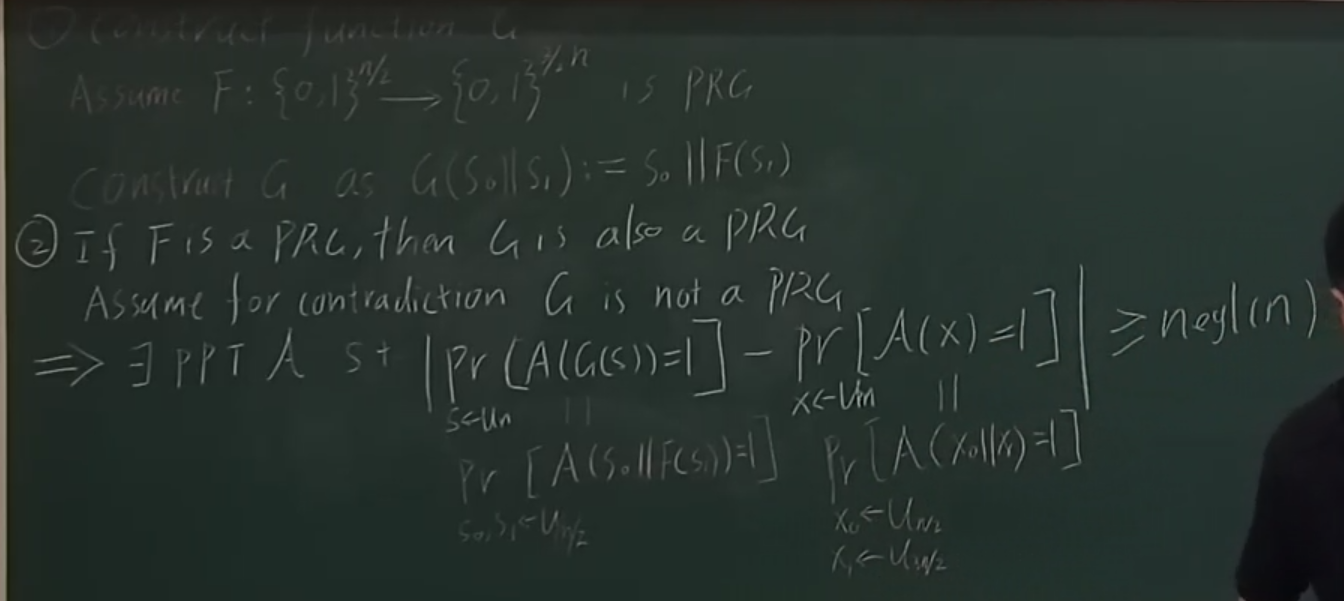 ① Construct function G
Assume F: {0,1}^{n/2} → {0,1}^{3/2 n} is PRG
Construct G as G(S₀||S₁) := S₀||F(S₁)
② If F is a PRG, then G is also a PRG
Assume for contradiction G is not a PRG
⇒ ∃ PPT A st |Pr[A(G(s))=1] - Pr[A(x)=1]| ≥ negl(n)
s←Un || x←U₂n ||
Pr[A(S₀||F(S₁))=1] Pr[A(x₀||x₁)=1]
S₀,S₁←U_{n/2} x₀←U_{n/2}
x₁←U_{3n/2}